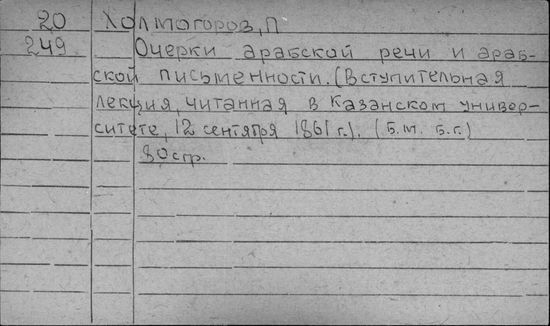 20 Холмогоров, П
249 Очерки арабской речи и араб-
ской письменности. (Вступительная
лекция, читанная в Казанском универ-
ситете, 12 сентября 1861 г.). (Б.м. Б.г.)
80 стр.